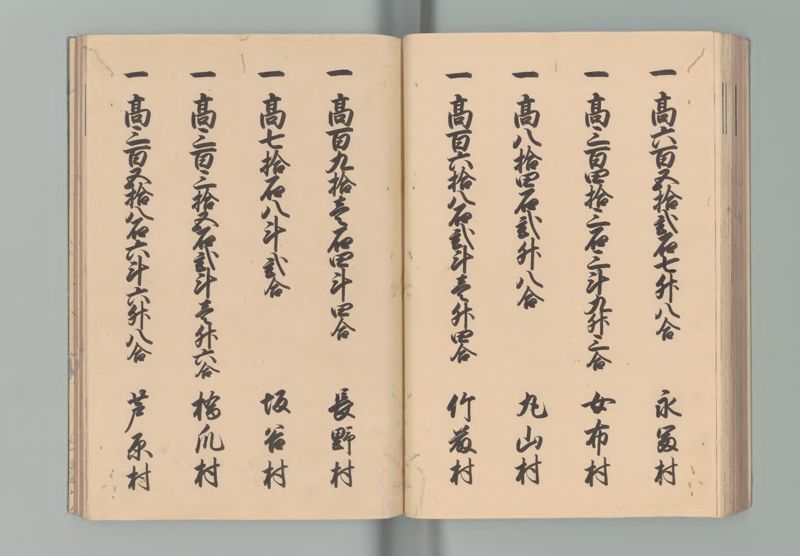 一 高六百五拾弐石七升八合 永冨村
一 高三百四拾三石三斗九升三合 女布村
一 高八拾四石弐升八合 丸山村
一 高百六拾八石弐斗壱升四合 竹藪村
一 高百九拾壱石四斗四合 長野村
一 高七拾石八斗弐合 坂谷村
一 高三百三拾五石弐斗壱升六合 橋爪村
一 高三百五拾八石六斗六升八合 芦原村